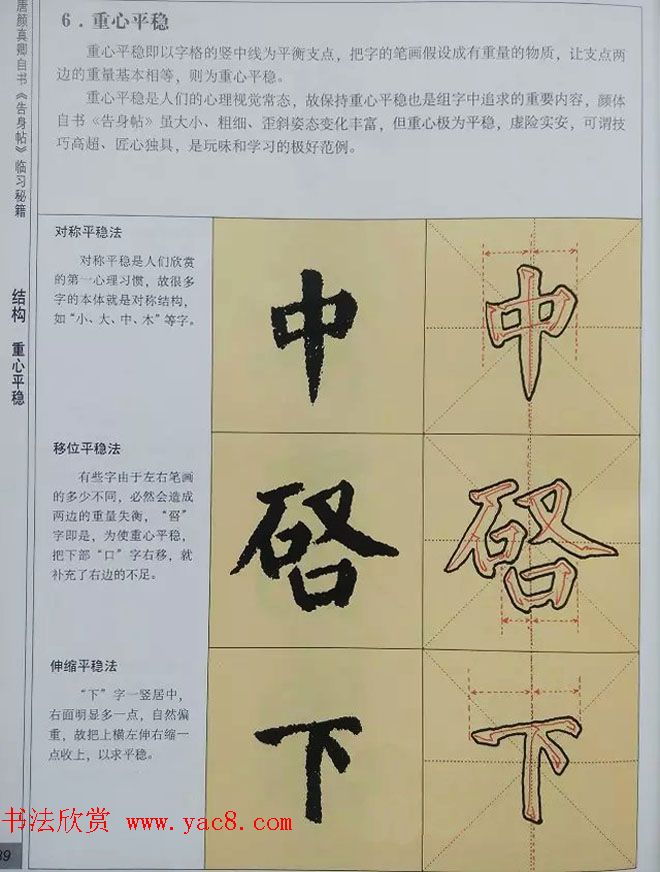 唐颜真卿自书《告身帖》临习秘籍
结构 重心平稳
6．重心平稳
重心平稳即以字格的竖中线为平衡支点，把字的笔画假设成有重量的物质，让支点两
边的重量基本相等，则为重心平稳。
重心平稳是人们的心理视觉常态，故保持重心平稳也是组字中追求的重要内容，颜体
自书《告身帖》虽大小、粗细、歪斜姿态变化丰富，但重心极为平稳，虚险实安，可谓技
巧高超、匠心独具，是玩味和学习的极好范例。
对称平稳法
对称平稳是人们欣赏
的第一心理习惯，故很多
字的本体就是对称结构，
如“小、大、中、木”等字。
中 中
移位平稳法
有些字由于左右笔画
的多少不同，必然会造成
两边的重量失衡，“硰”
字即是，为使重心平稳，
把下部“口”字右移，就
补充了右边的不足。
伸缩平稳法
“下”字一竖居中，
右面明显多一点，自然偏
重，故把上横左伸右缩一
点收上，以求平稳。
下 下
书法欣赏 www.yac8.com
89